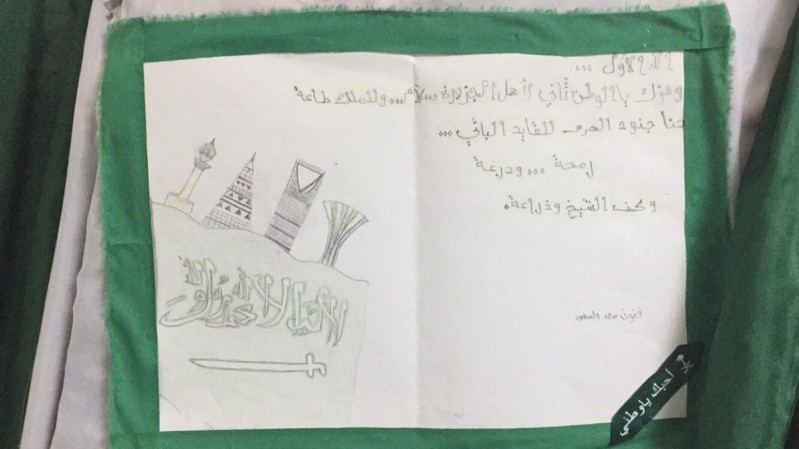 لله الاول ...
وعزك يا الوطن ثاني لأهل الجزيرة سلام ... وللملك طاعة
حنا جنود الحرب للقايد الباني ...
رمحة ... ودرعة
وكف الشيخ وذراعة.
لا إله إلا الله محمد رسول الله
فتون
احبك ياوطني